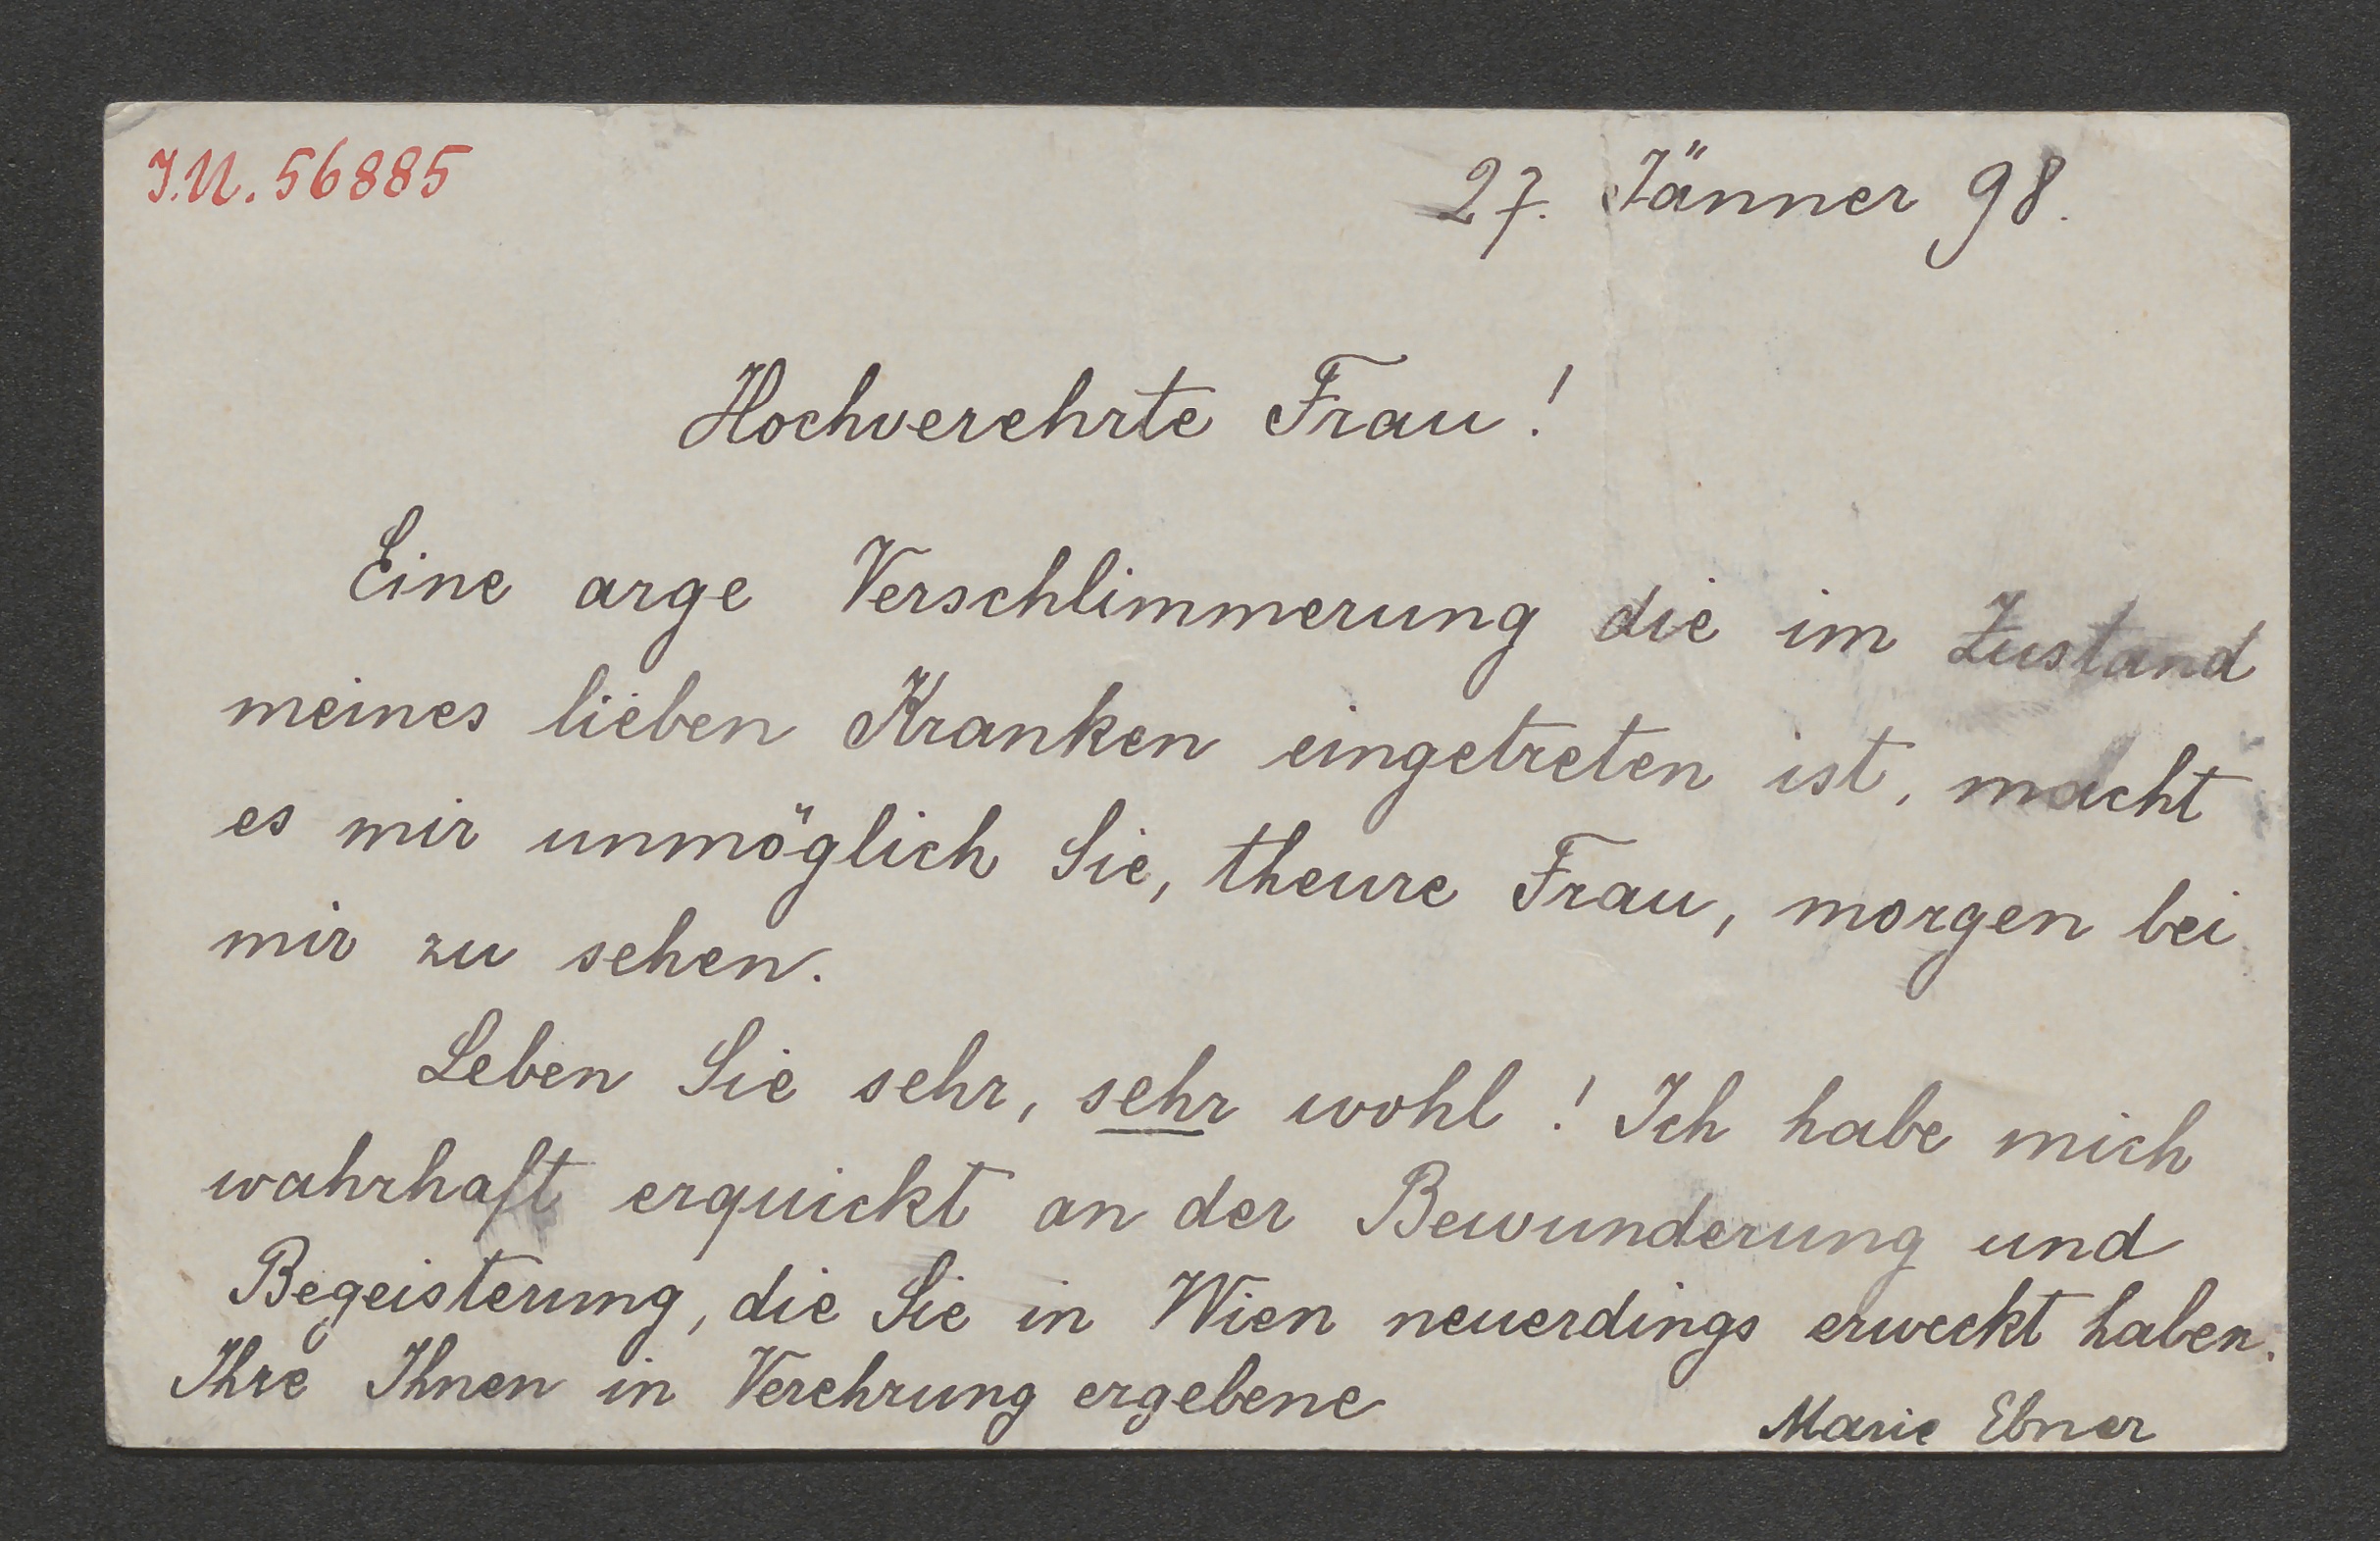 I.N. 56885
27. Jänner 98.
Hochverehrte Frau!
Eine arge Verschlimmerung die im Zustand
meines lieben Kranken eingetreten ist, macht
es mir unmöglich Sie, theure Frau, morgen bei
mir zu sehen.
Leben Sie sehr, sehr wohl! Ich habe mich
wahrhaft erquickt an der Bewunderung und
Begeisterung, die Sie in Wien neuerdings erweckt haben.
Ihre Ihnen in Verehrung ergebene
Marie Ebner